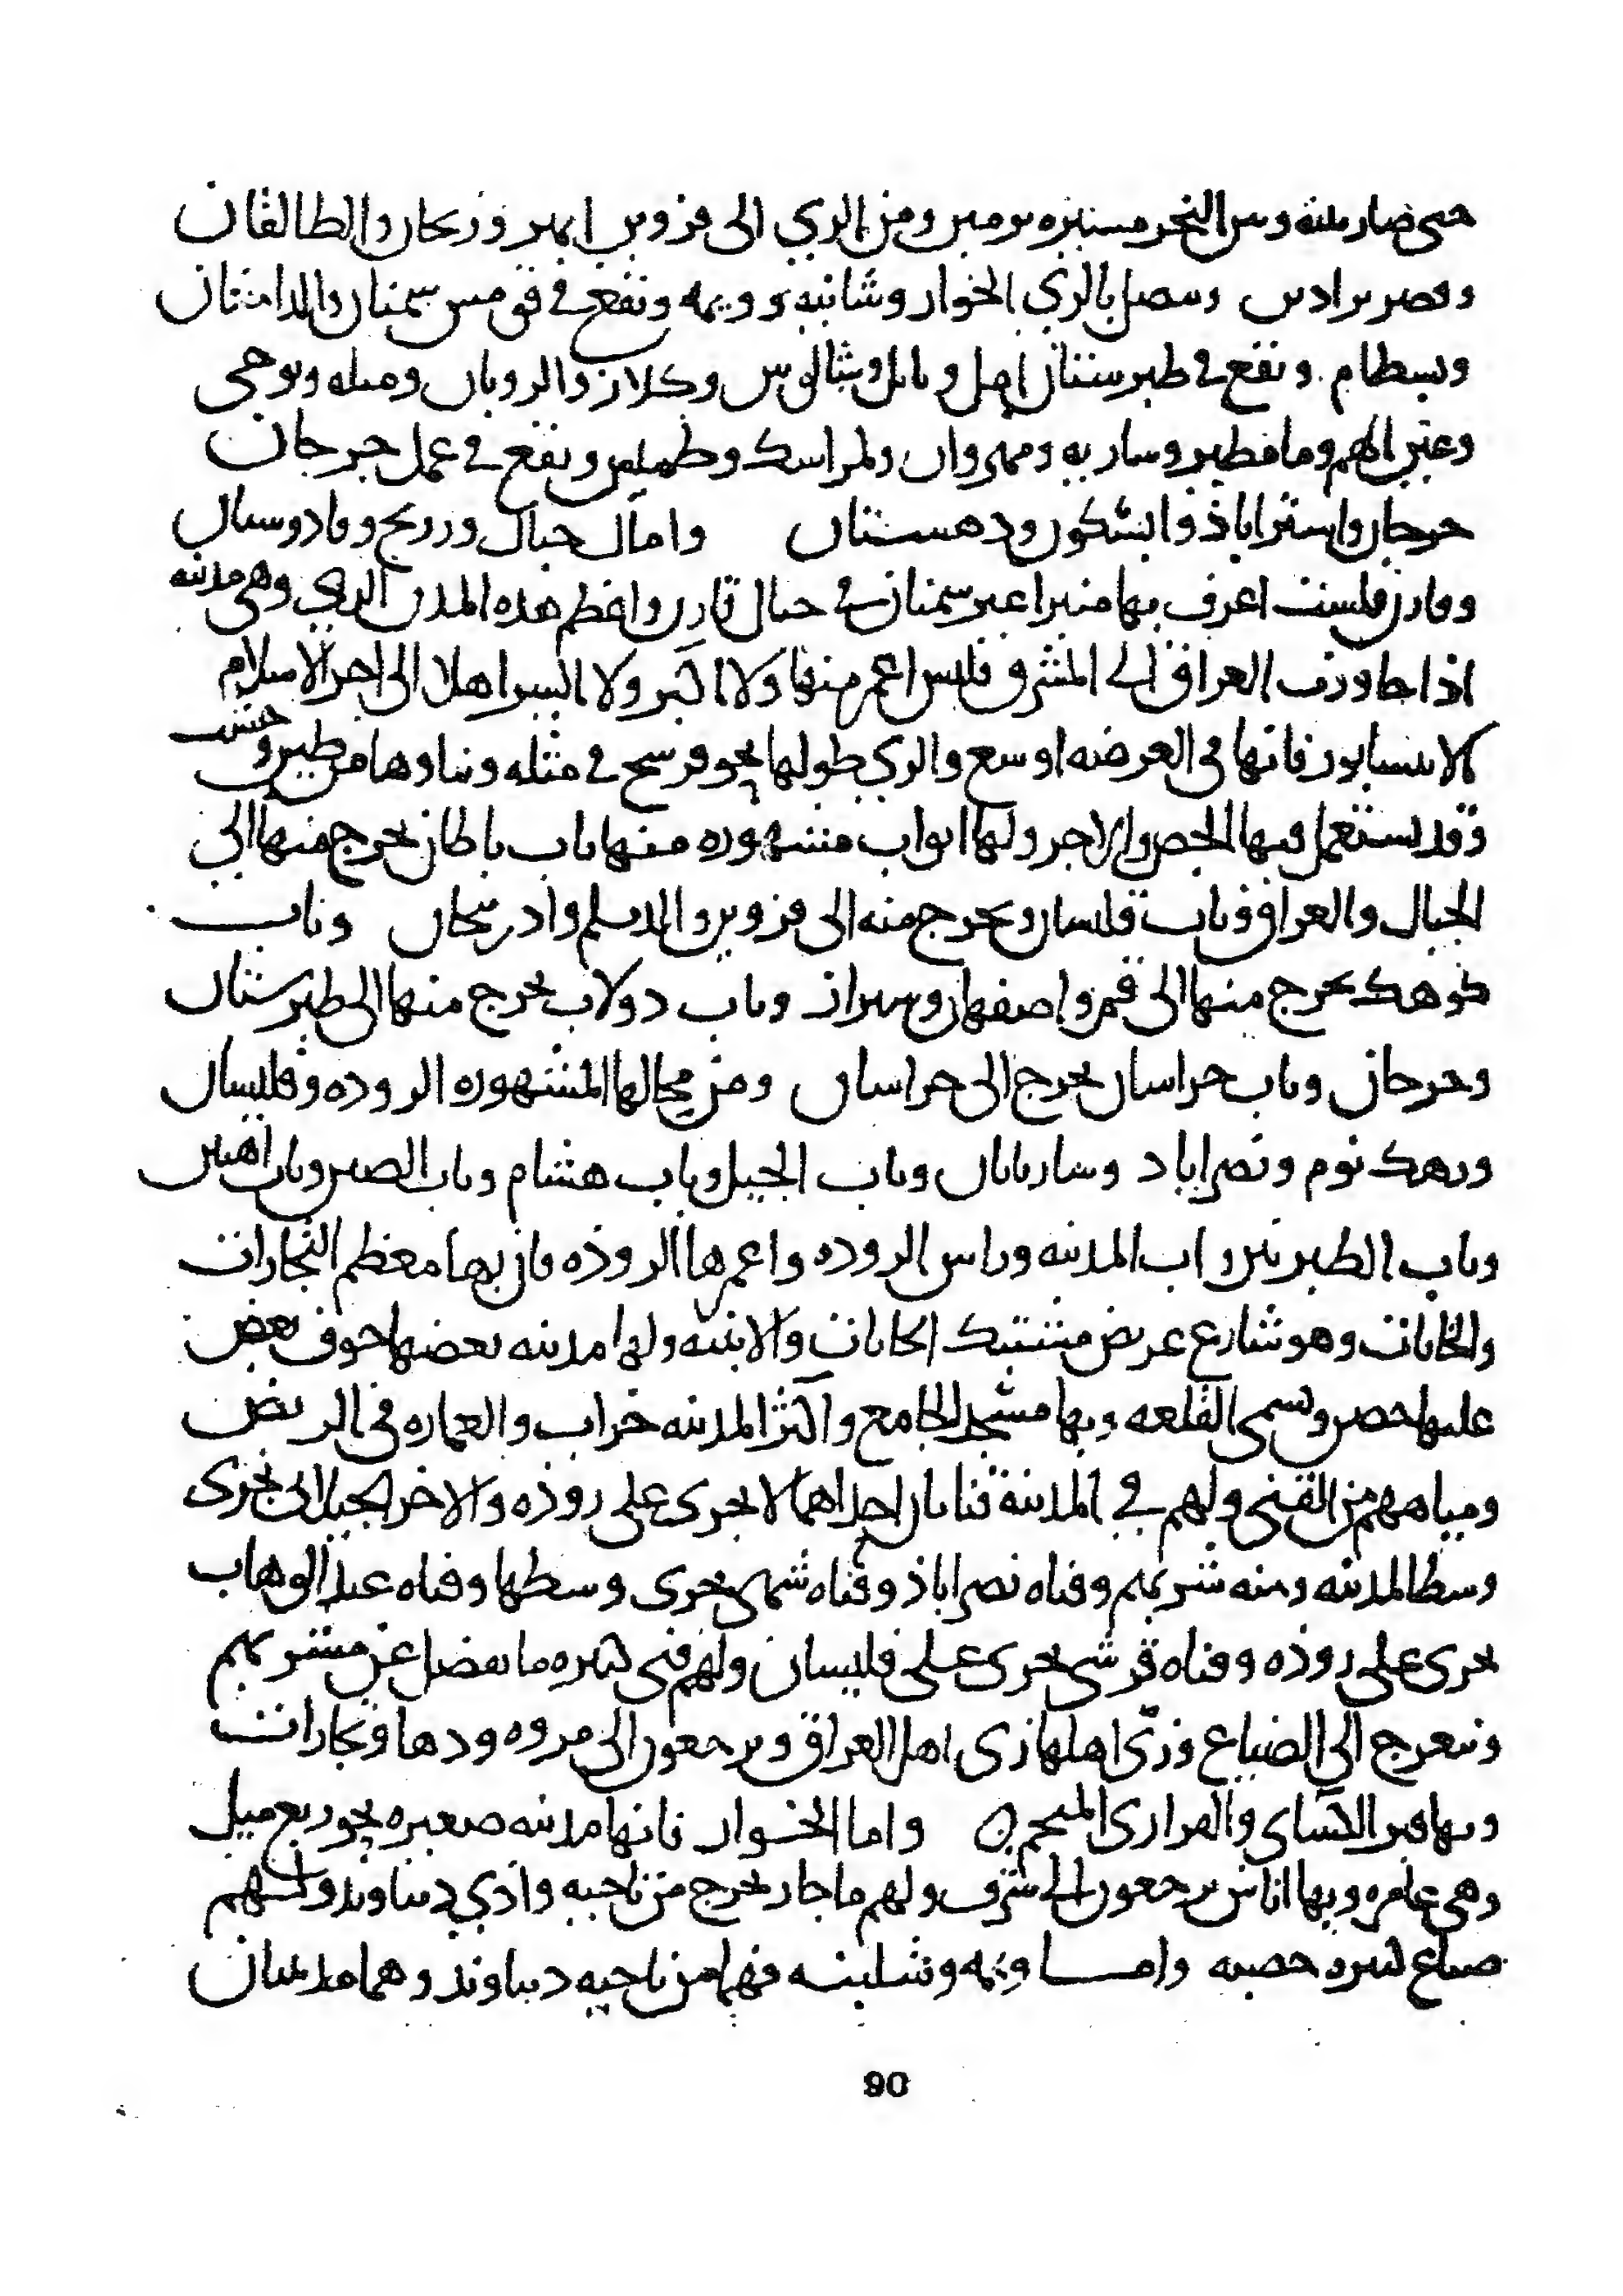 حتى صار بينه وبين البحر مسيرة يومين ومن الري الى قزوين ابهر وزنجان والطالقان
وقصر براذين ويتصل بالري الخوار وشلنبه وويمه وتقع في قومس سمنان والدامغان
وبسطام وتقع في طبرستان امل وناتل وشالوس وكلار والرويان وميله وبرجى
وعين الهم ومامطير وساريه ومهروان ولمراسك وطميس وتقع في عمل جرجان
جرجان واستراباذ وابسكون ودهستان واما ال جبال وروبنج وفادوسبان
وقارن فلست اعرف بها منبرا غير سمنان في جبال قارن واعظم هذه المدن الري وهي مدينه
اذا جاوزت العراق الى المشرق فليس اعمر منها ولا اكبر ولا ايسر اهلا الى اخر الاسلام
الا نيسابور فانها في العرضه اوسع والري طولها نحو فرسخ في مثله وبناوها من طين وخشب
وقد يستعمل فيها الجص والاجر ولها ابواب مشهوره منها باب باطان يخرج منها الى
الجبال والعراق وباب بليسان ويخرج منه الى قزوين والديلم واذربيجان وباب
كوهك يخرج منها الى قم واصفهان وشيراز وباب دولاب يخرج منها الى طبرستان
وجرجان وباب خراسان يخرج الى خراسان ومن محالها المشهوره الروده وفليسان
ودهك نوم ونصراباد وساربانان وباب الجبل وباب هشام وباب الصين وباب اهنين
وباب الطبرنين وباب المدينه وراس الروده واعمرها الروذه فان بها معظم التجارات
والخانات وهو شارع عريض مشتبك الخانات والابنيه ولها مدينه بعضها جوف بعض
عليها حصن وتسمى القلعه وبها مسجد الجامع واكثر المدينه خراب والعماره في الربض
ومياههم من القنى ولهم في المدينة قناتان احداهما لا تجرى على روذه والاخر الجبلانى تجرى
وسط المدينه ومنه شربهم وقناه نصراباذ وقناه شاهى تجرى وسطها وقناه عبد الوهاب
تجرى على روذه وقناه قرشى تجرى على فليسان ولهم قنى كثيره ما تفضل عن مشربهم
وتتعرج الى الضياع وزي اهلها زى اهل العراق ويرجعون الى مروه ودها وتجارات
وبها قبر الكساى والفرارى المنجم واما الخوار فانها مدينه صغيره نحو ربع ميل
وهي عامره وبها اناس يرجعون الى شرف ولهم ما جار يخرج من ناحيه واذي دنباوند ولهم
ضياع كثيره خصبه واما ويمه وشلينه فهما من ناحيه دنباوند وهما مدينتان
90